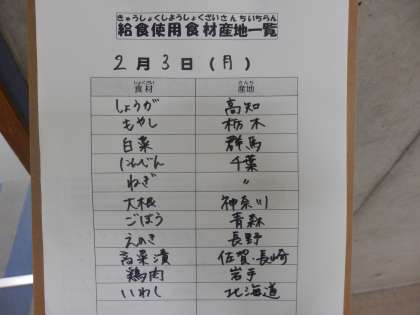 きゅうしょくしようしょくざいさんちいちらん
給食使用食材産地一覧
2月3日(月)
しょくざい さんち
食材 産地
しょうが 高知
もやし 栃木
白菜 群馬
にんじん 千葉
ねぎ 〃
大根 神奈川
ごぼう 青森
えのき 長野
高菜漬 佐賀・長崎
鶏肉 岩手
いわし 北海道